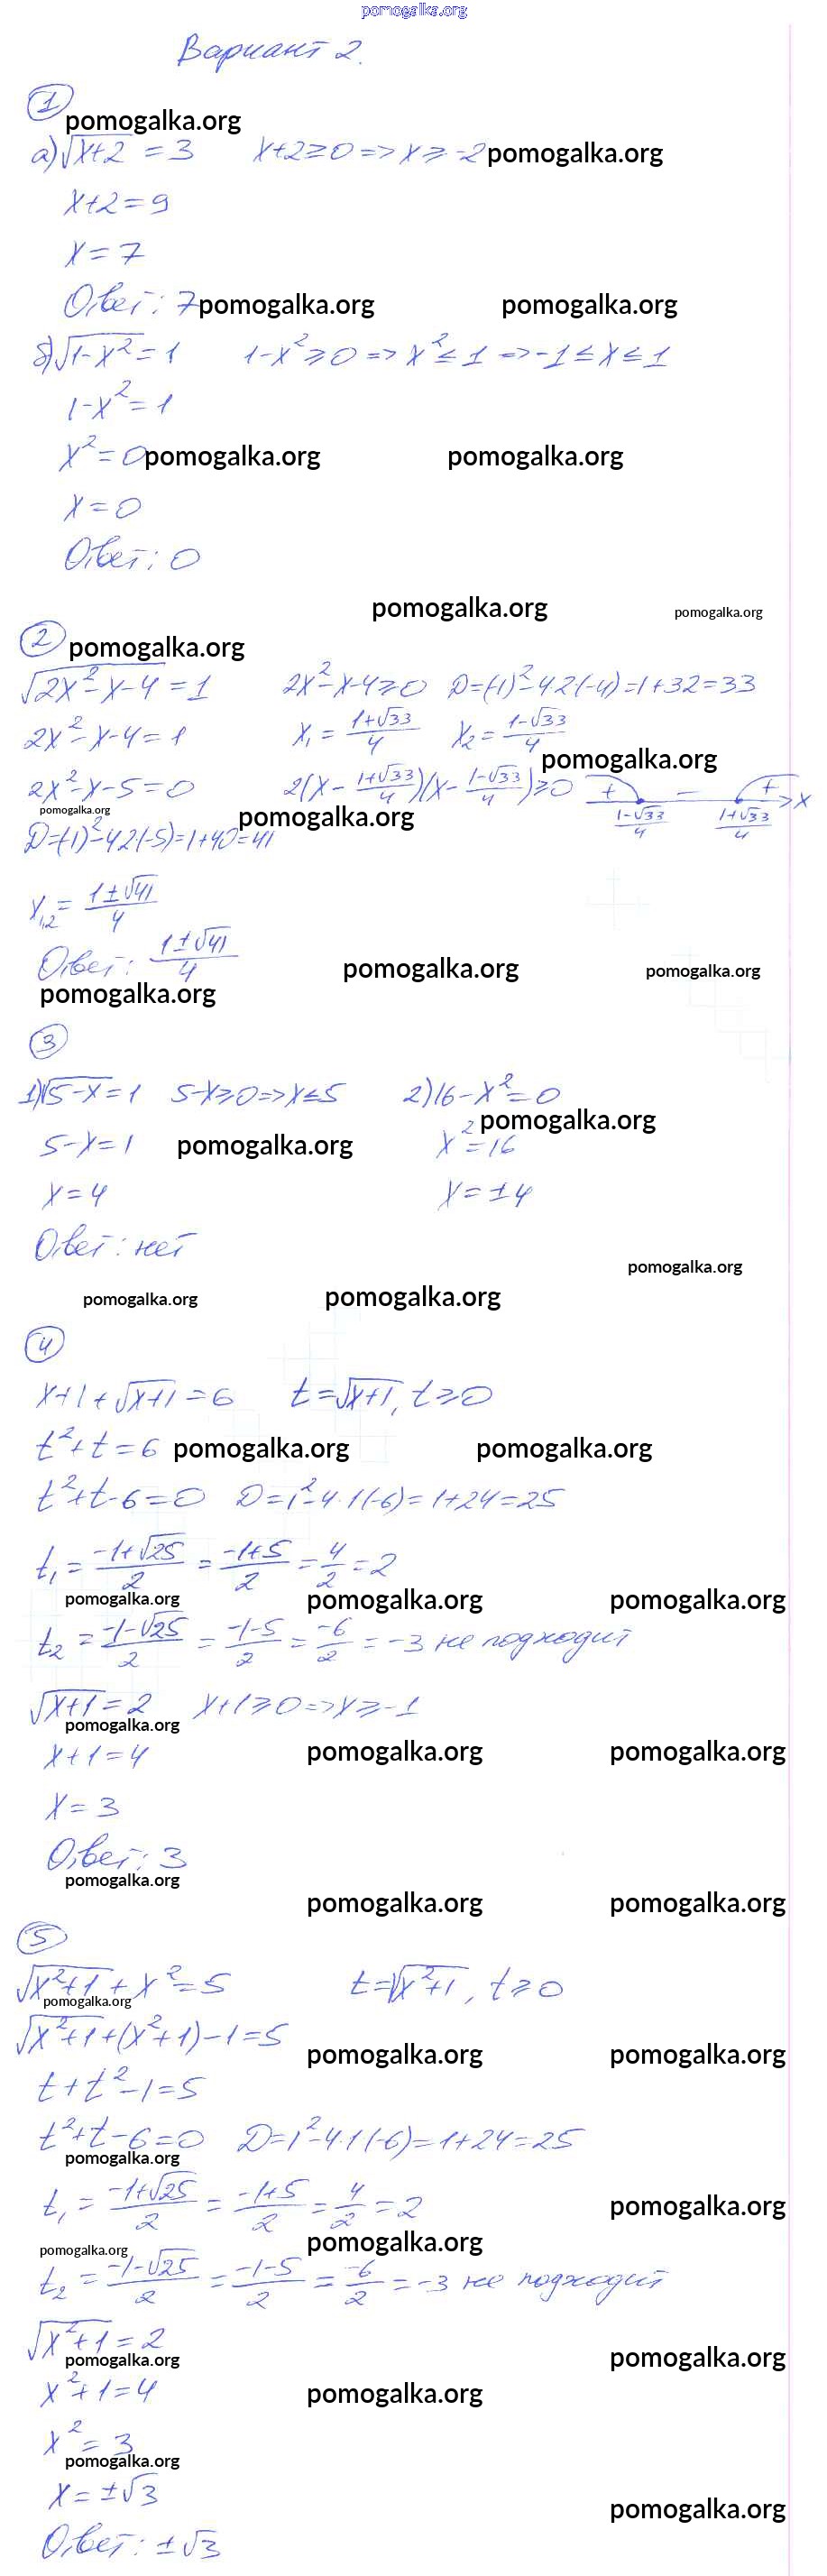 pomogalka.org
Вариант 2.
1
pomogalka.org
а) √(x+2) = 3 x+2≥0 => x≥-2 pomogalka.org
x+2=9
x=7
Ответ: 7 pomogalka.org pomogalka.org
б) √(1-x²) = 1 1-x²≥0 => x²≤1 => -1≤x≤1
1-x²=1
x²=0 pomogalka.org pomogalka.org
x=0
Ответ: 0
pomogalka.org pomogalka.org
2 pomogalka.org
√(2x²-x-4) = 1 2x²-x-4≥0 D=(-1)²-4·2(-4)=1+32=33
2x²-x-4=1 x₁ = (1+√33)/4 x₂ = (1-√33)/4
pomogalka.org
2x²-x-5=0 2(x - (1+√33)/4)(x - (1-√33)/4)≥0 + - + x
(1-√33)/4 (1+√33)/4
pomogalka.org pomogalka.org
D=(-1)²-4·2(-5)=1+40=41
x₁,₂ = (1±√41)/4
Ответ: (1±√41)/4 pomogalka.org pomogalka.org
pomogalka.org
3
1) √(5-x) = 1 5-x≥0 => x≤5 2) 16-x²=0
pomogalka.org
5-x=1 pomogalka.org x²=16
x=4 x=±4
Ответ: нет
pomogalka.org
pomogalka.org pomogalka.org
4
x+1+√(x+1) = 6 t=√(x+1), t≥0
t²+t=6 pomogalka.org pomogalka.org
t²+t-6=0 D=1²-4·1(-6)=1+24=25
t₁ = (-1+√25)/2 = (-1+5)/2 = 4/2 = 2
pomogalka.org pomogalka.org pomogalka.org
t₂ = (-1-√25)/2 = (-1-5)/2 = -6/2 = -3 не подходит
√(x+1) = 2 x+1≥0 => x≥-1
pomogalka.org
x+1=4 pomogalka.org pomogalka.org
x=3
Ответ: 3
pomogalka.org
pomogalka.org pomogalka.org
5
√(x²+1) + x² = 5 t=√(x²+1), t≥0
pomogalka.org
√(x²+1)+(x²+1)-1=5
pomogalka.org pomogalka.org
t+t²-1=5
t²+t-6=0 D=1²-4·1(-6)=1+24=25
pomogalka.org
t₁ = (-1+√25)/2 = (-1+5)/2 = 4/2 = 2 pomogalka.org
pomogalka.org pomogalka.org
t₂ = (-1-√25)/2 = (-1-5)/2 = -6/2 = -3 не подходит
√(x²+1) = 2
pomogalka.org pomogalka.org
x²+1=4 pomogalka.org
x²=3
pomogalka.org
x=±√3
pomogalka.org
Ответ: ±√3